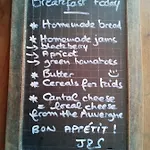 Breakfast today
* Homemade bread
* Homemade jams
↳ blackberry
↳ Apricot
↳ green tomatoes
* Butter
* Cereals for kids
* Cantal cheese
= local cheese
from the Auvergne
BON APPÉTIT !
J&S